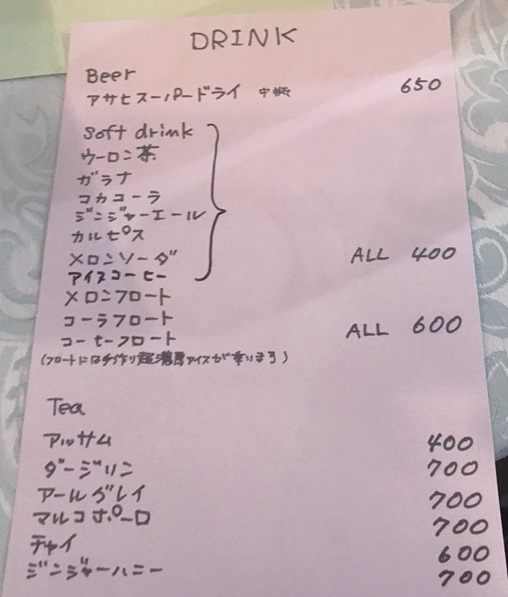 DRINK
Beer
アサヒスーパードライ 中瓶 650
Soft drink
ウーロン茶
ガラナ
コカコーラ
ジンジャーエール
カルピス
メロンソーダ ALL 400
アイスコーヒー
メロンフロート
コーラフロート ALL 600
コーヒーフロート
(フロートには手作り超濃厚アイスが乗りまう)
Tea
アッサム 400
ダージリン 700
アールグレイ 700
マルコポーロ 700
チャイ 600
ジンジャーハニー 700